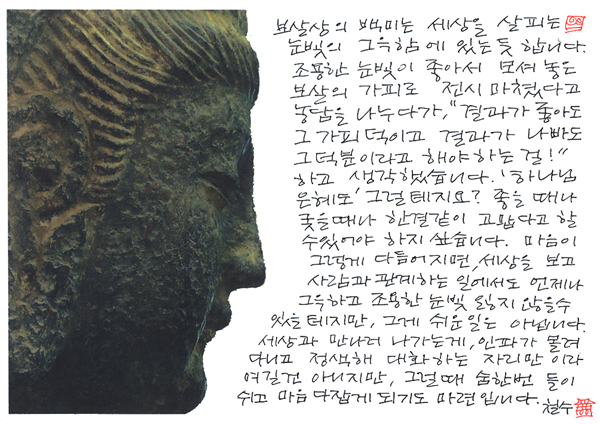 보살상의 백미는 세상을 살피는
눈빛의 그윽함에 있는듯 합니다.
조용한 눈빛이 좋아서 모셔 놓은
보살의 가피로 전시 마쳤다고
농담을 나누다가, "결과가 좋아도
그 가피 덕이고 결과가 나빠도
그 덕분이라고 해야 하는 걸!"
하고 생각했습니다. '하나님
은혜도' 그럴테지요? 좋을 때나
궂을때나 한결같이 고맙다고 할
수 있어야 하지 싶습니다. 마음이
그렇게 다듬어지면, 세상을 보고
사람과 관계하는 일에서도 언제나
그윽하고 조용한 눈빛 잃지 않을수
있을 테지만, 그게 쉬운일은 아닙니다.
세상과 만나러 나가는게, 인파가 몰려
다니고 정색해 대화하는 자리만이라
여길건 아니지만, 그럴때 숨한번 들이
쉬고 마음 다잡게 되기도 마련입니다. 철수